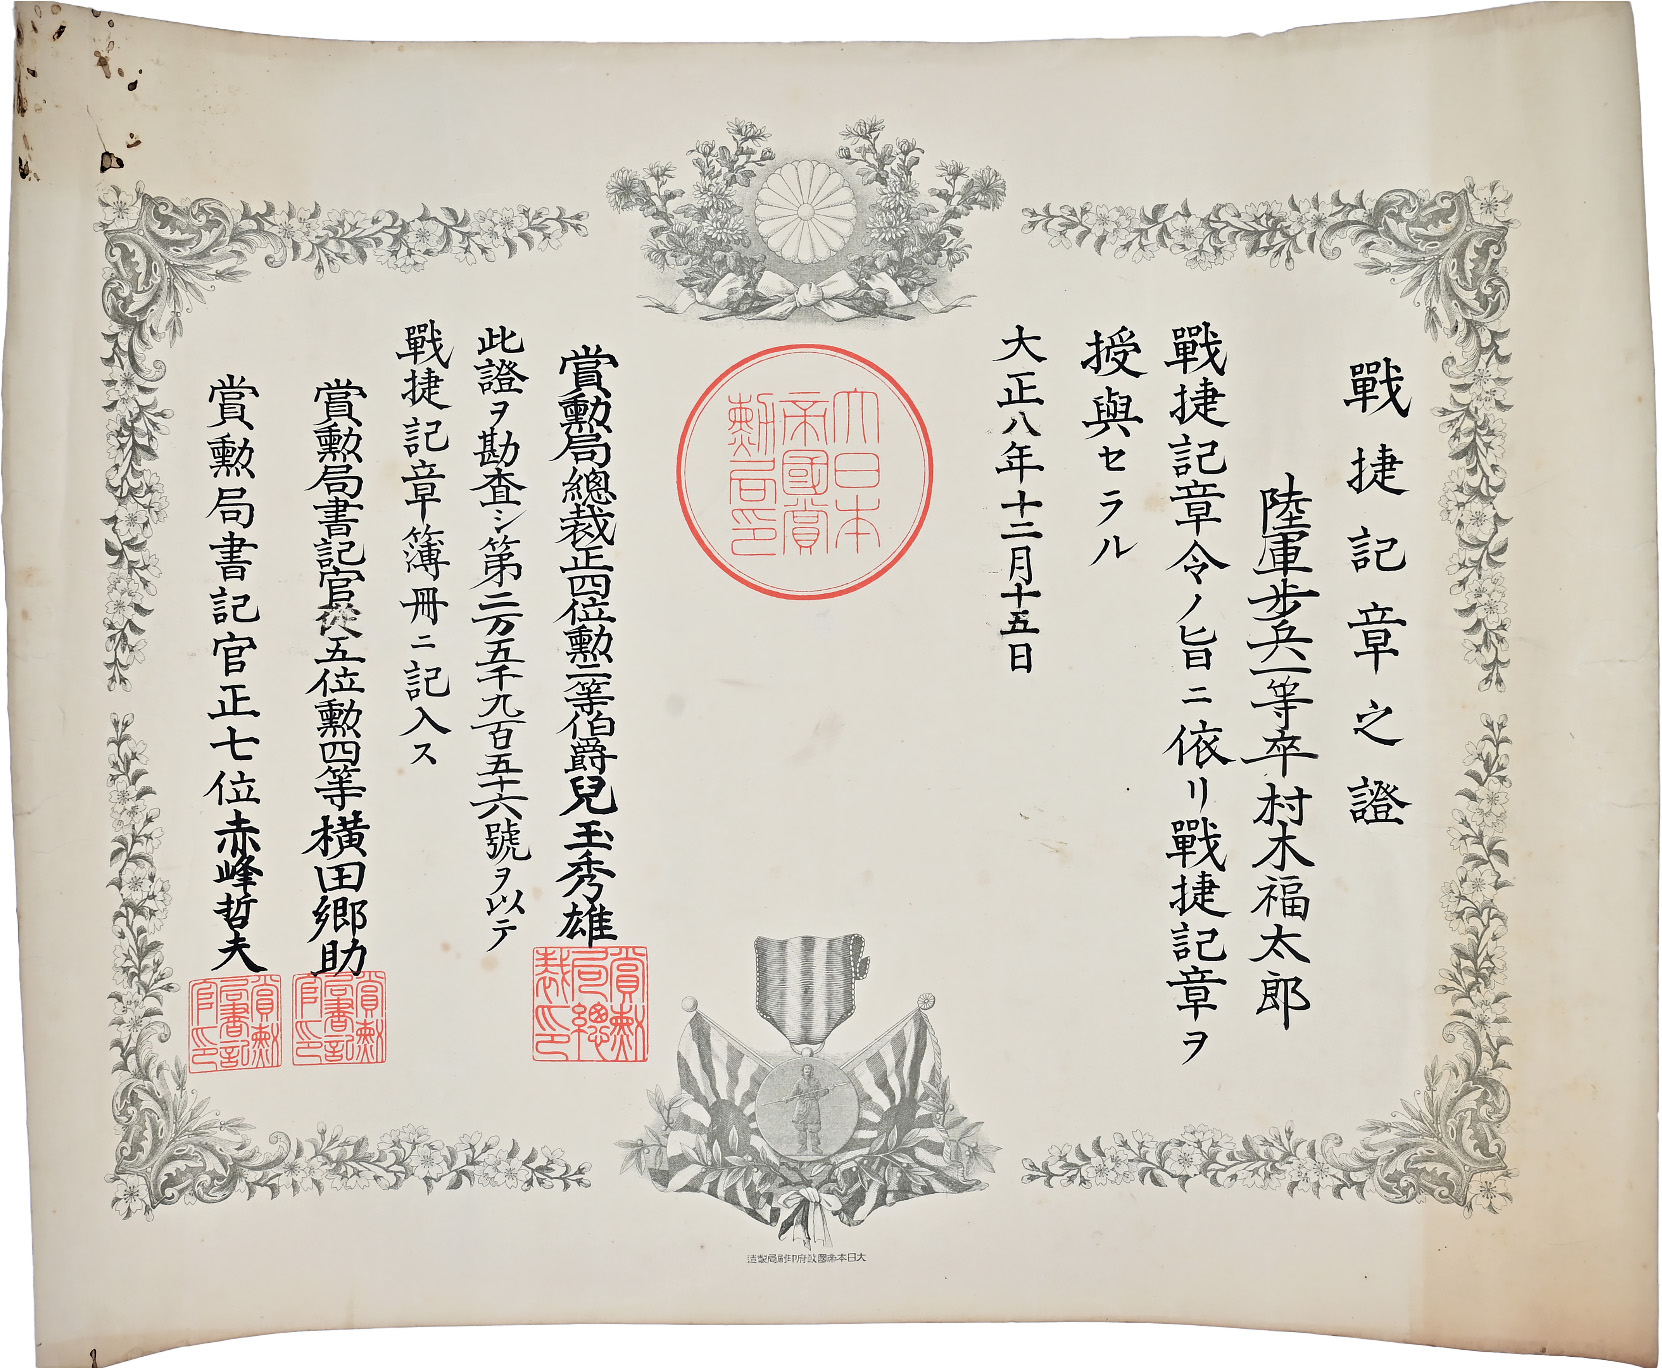 戰捷記章之證
陸軍步兵一等卒村木福太郎
戰捷記章令ノ旨ニ依リ戰捷記章ヲ
授與セラル
大正八年十二月十五日
大日本
帝國賞
勲局印
賞勲局總裁正四位勲二等伯爵兒玉秀雄
賞勲
局總
裁印
此證ヲ勘査シ第二万五千九百五十六號ヲ以テ
戰捷記章簿冊ニ記入ス
賞勲局書記官從五位勲四等橫田郷助
賞勲
局書記
官印
賞勲局書記官正七位赤峰哲夫
賞勲
局書記
官印
大日本帝國政府印刷局製造